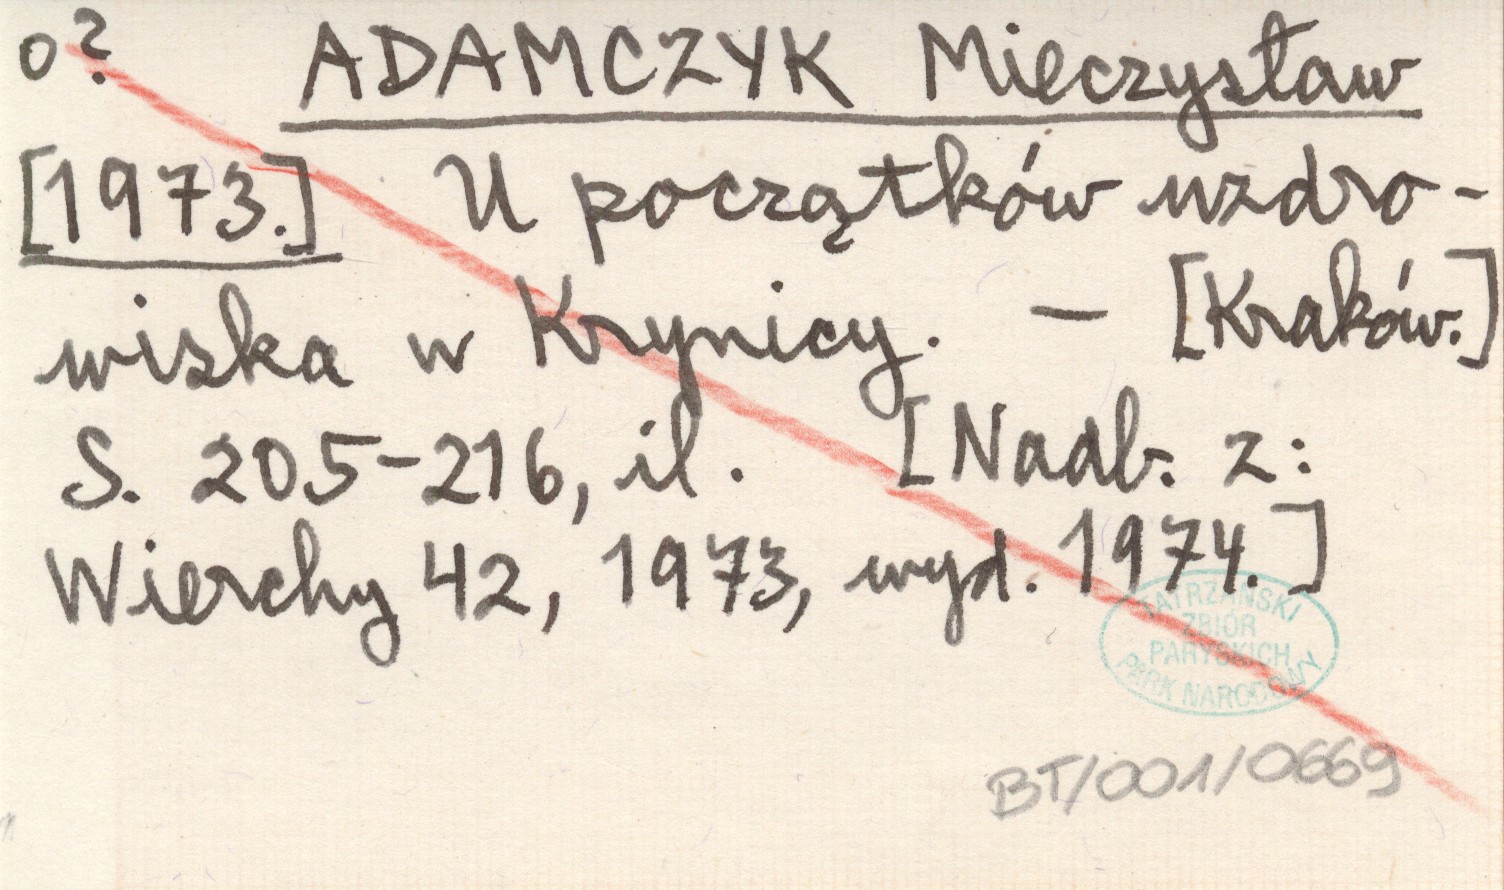 o? ADAMCZYK Mieczysław
[1973.] U początków uzdro-
wiska w Krynicy. — [Kraków.]
S. 205-216, il. [Nadb. z:
Wierchy 42, 1973, wyd. 1974.]
TATRZAŃSKI
ZBIÓR
PARYSKICH
PARK NARODOWY
BT/001/0669